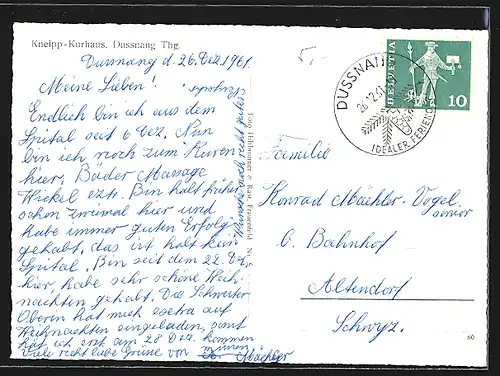 Kneipp-Kurhaus. Dussnang Thg.
Dussnang d. 26. Dez. 1961.
Meine Lieben!
Endlich bin ich aus dem
Spital seit 6 Dez. Nun
bin ich noch zum Kuren
hier, Bäder Massage
Wickel ezt. Bin halt früher
schon zweimal hier und
habe immer guten Erfolg
gehabt, das ist halt kein
Spital. Bin seit dem 22. Dez.
hier, habe sehr schöne Weih
nachten gehabt. Die Schwester
Oberin hat mich extra auf
Weihnachten eingeladen, sonst
hät ich erst am 28 Dez. kommen
müssen
Viele recht liebe Grüsse von Mächler
Wünsche auch recht gutes
Foto Hilfbrunner & Rast, Frauenfeld
HELVETIA
10
DUSSNANG
26.12.61
IDEALER FERIENORT
Familie
Konrad Mächler-Vogel
senior
b. Bahnhof
Altendorf
Schwyz.
60